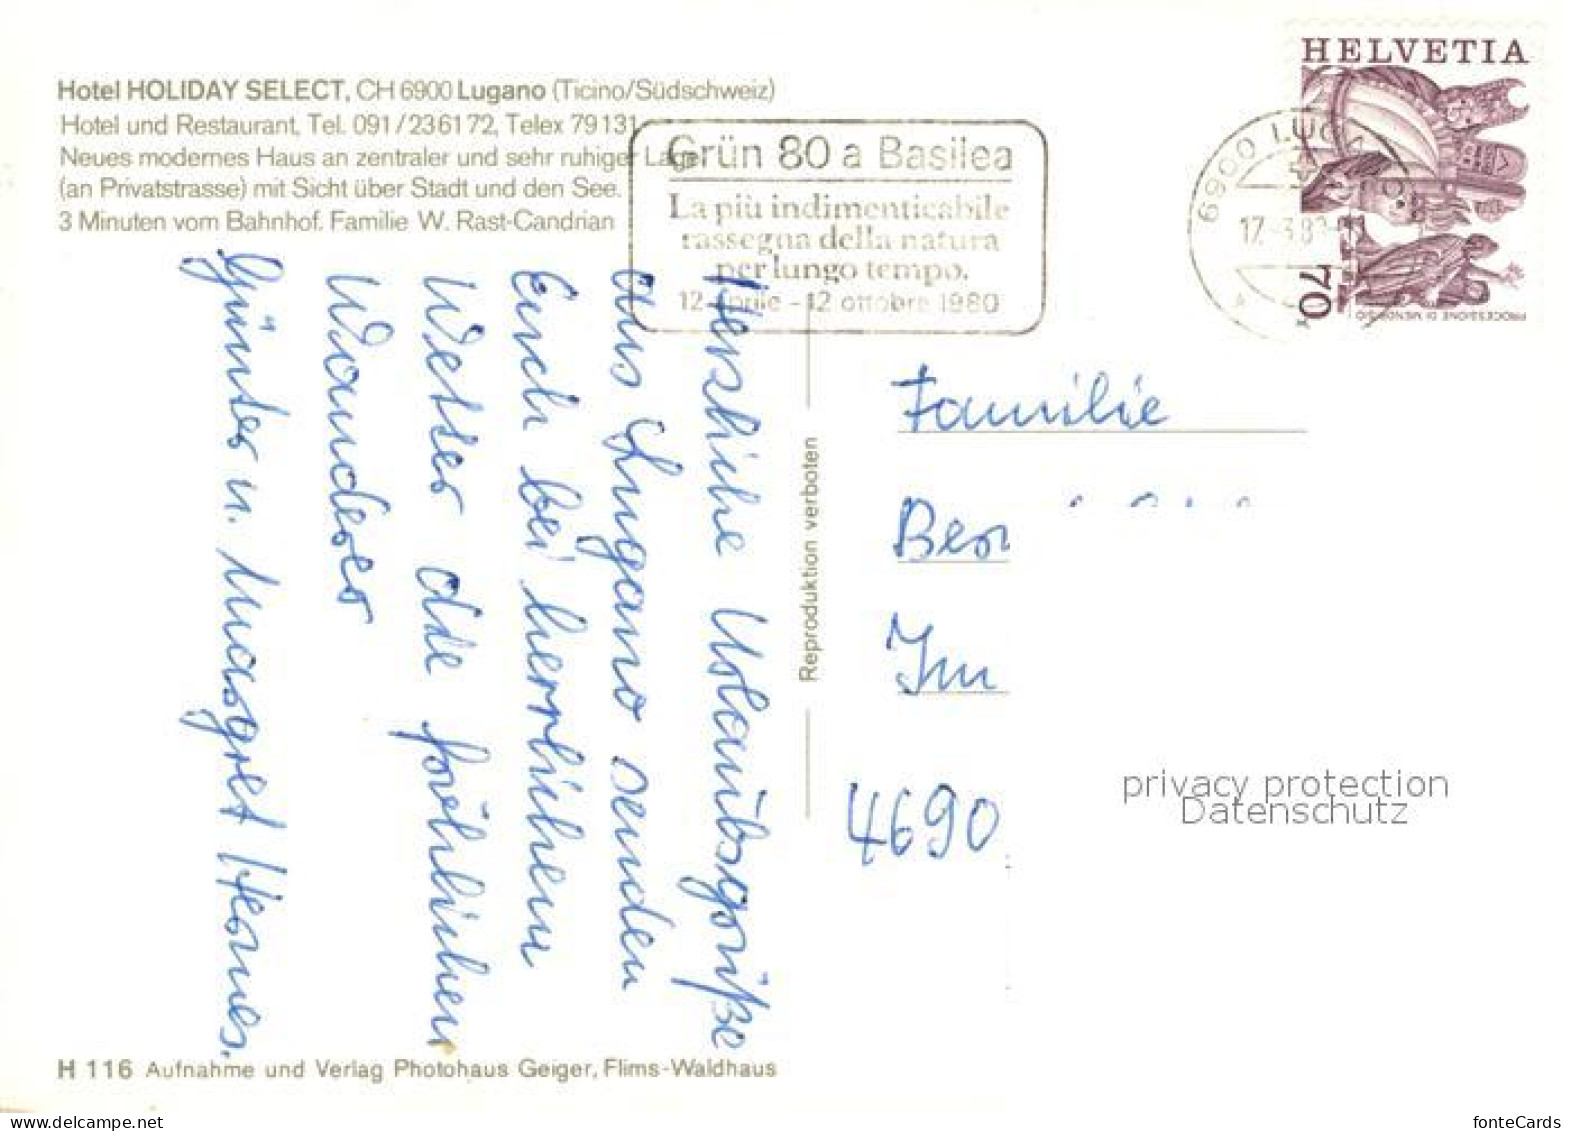 Hotel HOLIDAY SELECT, CH 6900 Lugano (Ticino/Südschweiz)
Hotel und Restaurant, Tel. 091/236172, Telex 79131
Neues modernes Haus an zentraler und sehr ruhiger Lage
(an Privatstrasse) mit Sicht über Stadt und den See.
3 Minuten vom Bahnhof. Familie W. Rast-Candrian
Grün 80 a Basilea
La più indimenticabile
rassegna della natura
per lungo tempo.
12 aprile - 12 ottobre 1980
6900 LUGA
HELVETIA
70
PROCESSIONE DI MENDRISIO
Herzliche Urlaubsgrüße
aus Lugano senden
Euch bei herrlichem
Wetter die fröhlichen
Wanderer
Günter u. Margret Hermes.
Reproduktion verboten
Familie
Ber
Im
4690
privacy protection
Datenschutz
H 116 Aufnahme und Verlag Photohaus Geiger, Flims-Waldhaus
www.delcampe.net
fonteCards